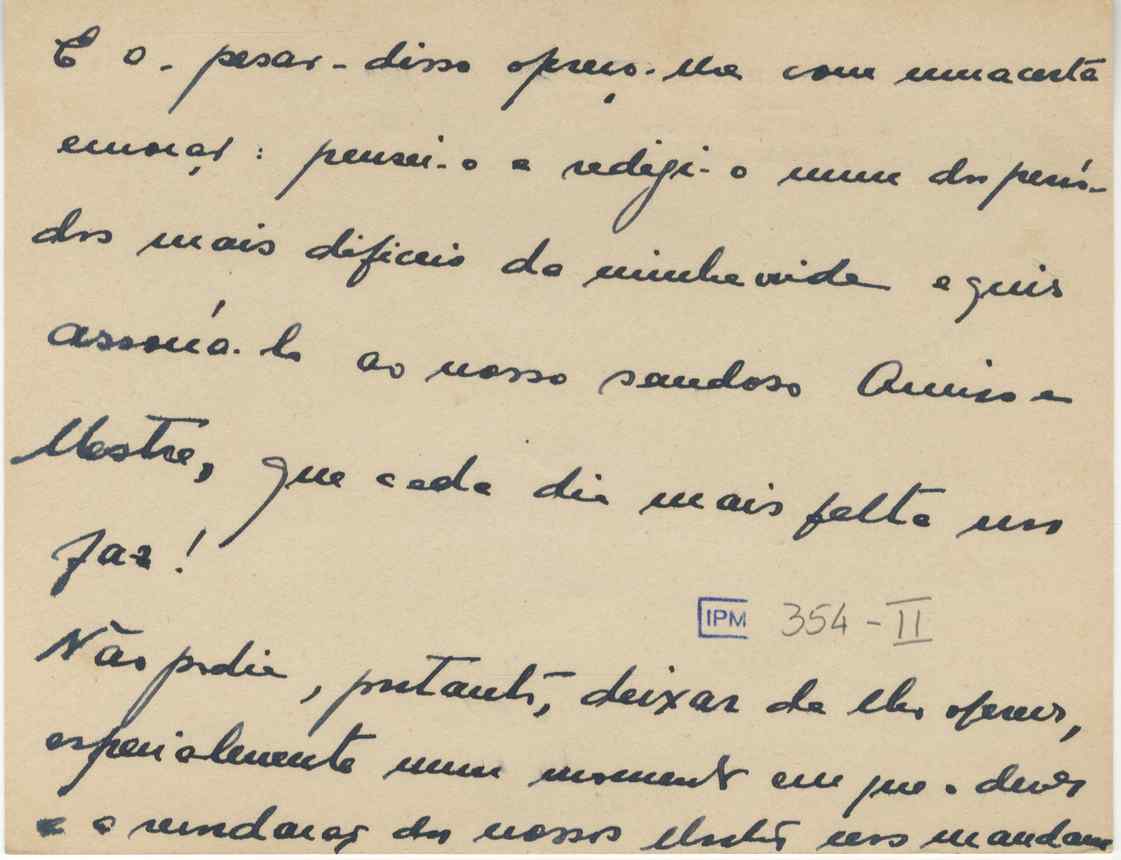 E a-pesar-disso ofereço-lhe com uma certa
emoção: pensei-o e redigi-o num dos perío-
dos mais dificeis da minha vida e quis
associá-lo ao nosso saudoso Amigo e
Mestre, que cada dia mais falta nos
faz!
IPM 354-II
Não podia, portanto, deixar de lho oferecer,
especialmente num momento em que o dever
e a recordação dos nossos Mestres nos mandam